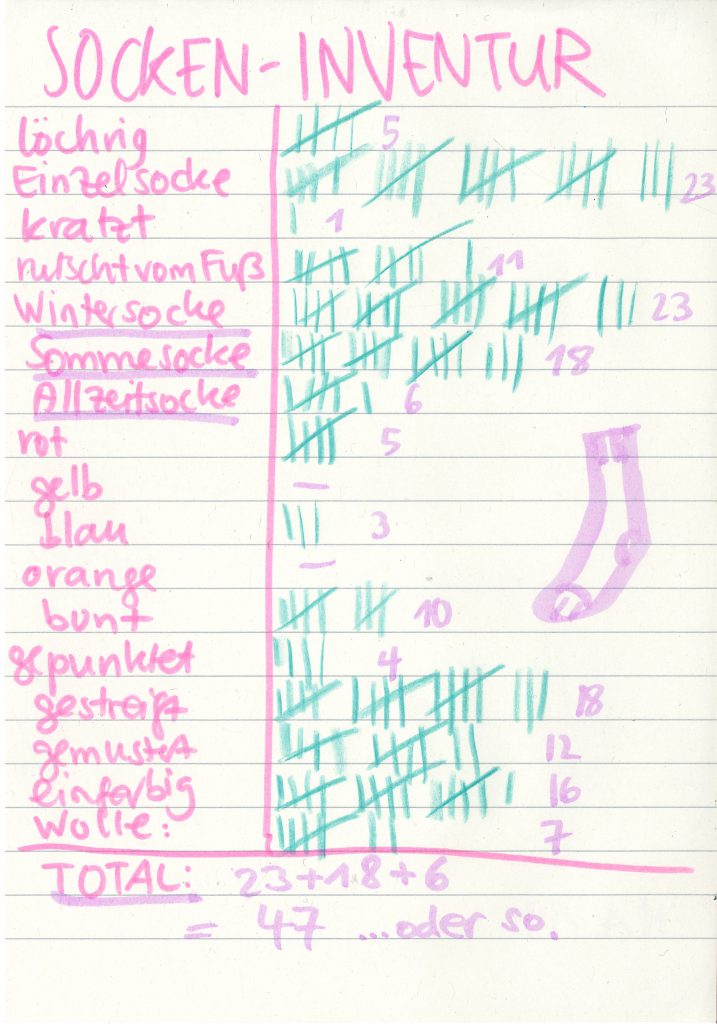 SOCKEN-INVENTUR
löchrig 5
Einzelsocke 23
kratzt 1
rutscht vom Fuß 11
Wintersocke 23
Sommesocke 18
Allzeitsocke 6
rot 5
gelb —
blau 3
orange —
bunt 10
gepunktet 4
gestreift 18
gemustert 12
einfarbig 16
Wolle: 7
TOTAL: 23+18+6
= 47 ...oder so.